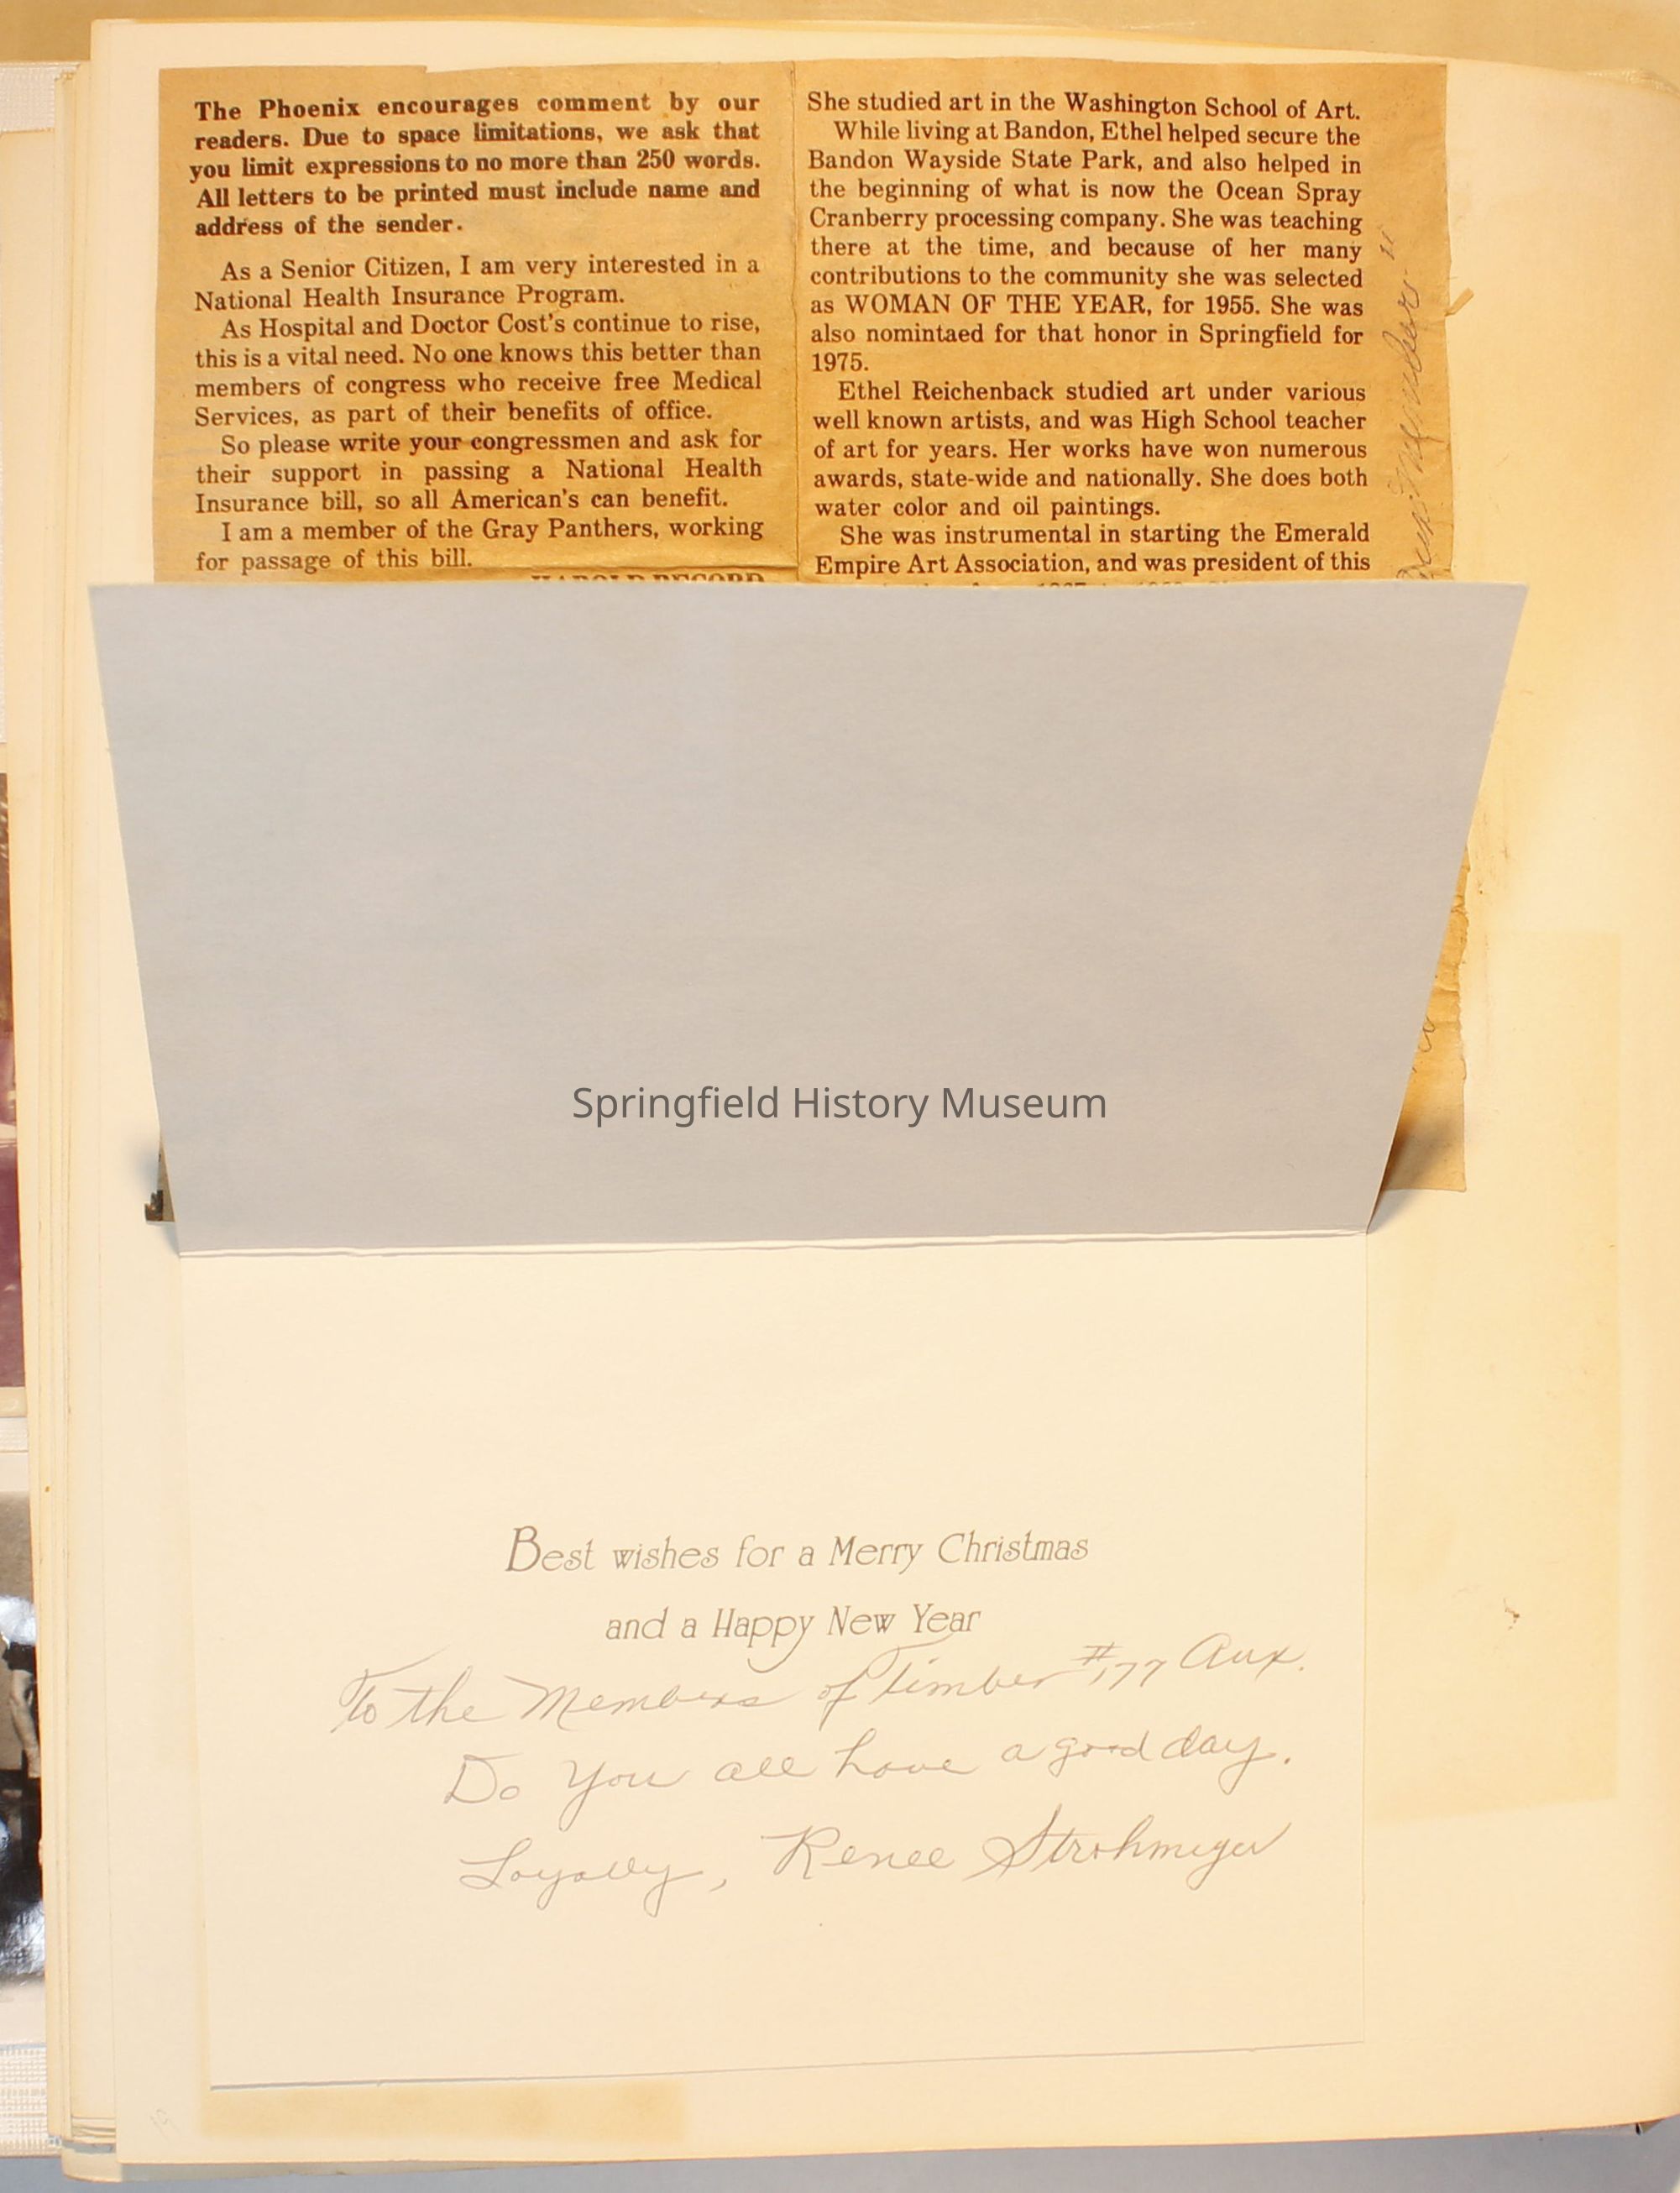 The Phoenix encourages comment by our
readers. Due to space limitations, we ask that
you limit expressions to no more than 250 words.
All letters to be printed must include name and
address of the sender.
As a Senior Citizen, I am very interested in a
National Health Insurance Program.
As Hospital and Doctor Cost's continue to rise,
this is a vital need. No one knows this better than
members of congress who receive free Medical
Services, as part of their benefits of office.
So please write your congressmen and ask for
their support in passing a National Health
Insurance bill, so all American's can benefit.
I am a member of the Gray Panthers, working
for passage of this bill.
HAROLD RECORD
She studied art in the Washington School of Art.
While living at Bandon, Ethel helped secure the
Bandon Wayside State Park, and also helped in
the beginning of what is now the Ocean Spray
Cranberry processing company. She was teaching
there at the time, and because of her many
contributions to the community she was selected
as WOMAN OF THE YEAR, for 1955. She was
also nomintaed for that honor in Springfield for
1975.
Ethel Reichenback studied art under various
well known artists, and was High School teacher
of art for years. Her works have won numerous
awards, state-wide and nationally. She does both
water color and oil paintings.
She was instrumental in starting the Emerald
Empire Art Association, and was president of this
Springfield History Museum
Best wishes for a Merry Christmas
and a Happy New Year
To the Members of Timber #177 Aux.
Do You all have a good day.
Loyally, Renee Strohmeyer